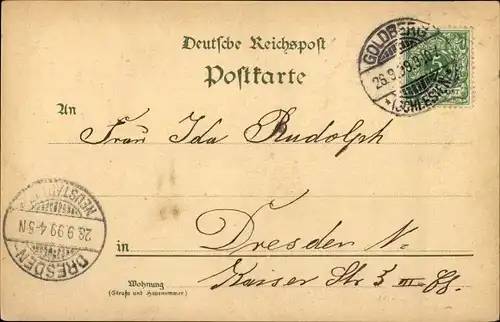 Deutsche Reichspost
Postkarte
GOLDBERG
26.9.99.
* (SCHLESIEN)
An
Frau Ida Rudolph
DRESDEN
NEUSTADT
26.9.99 4-5N
in Dresden N.
Kaiser Str 3 III
Wohnung
(Straße und Hausnummer)